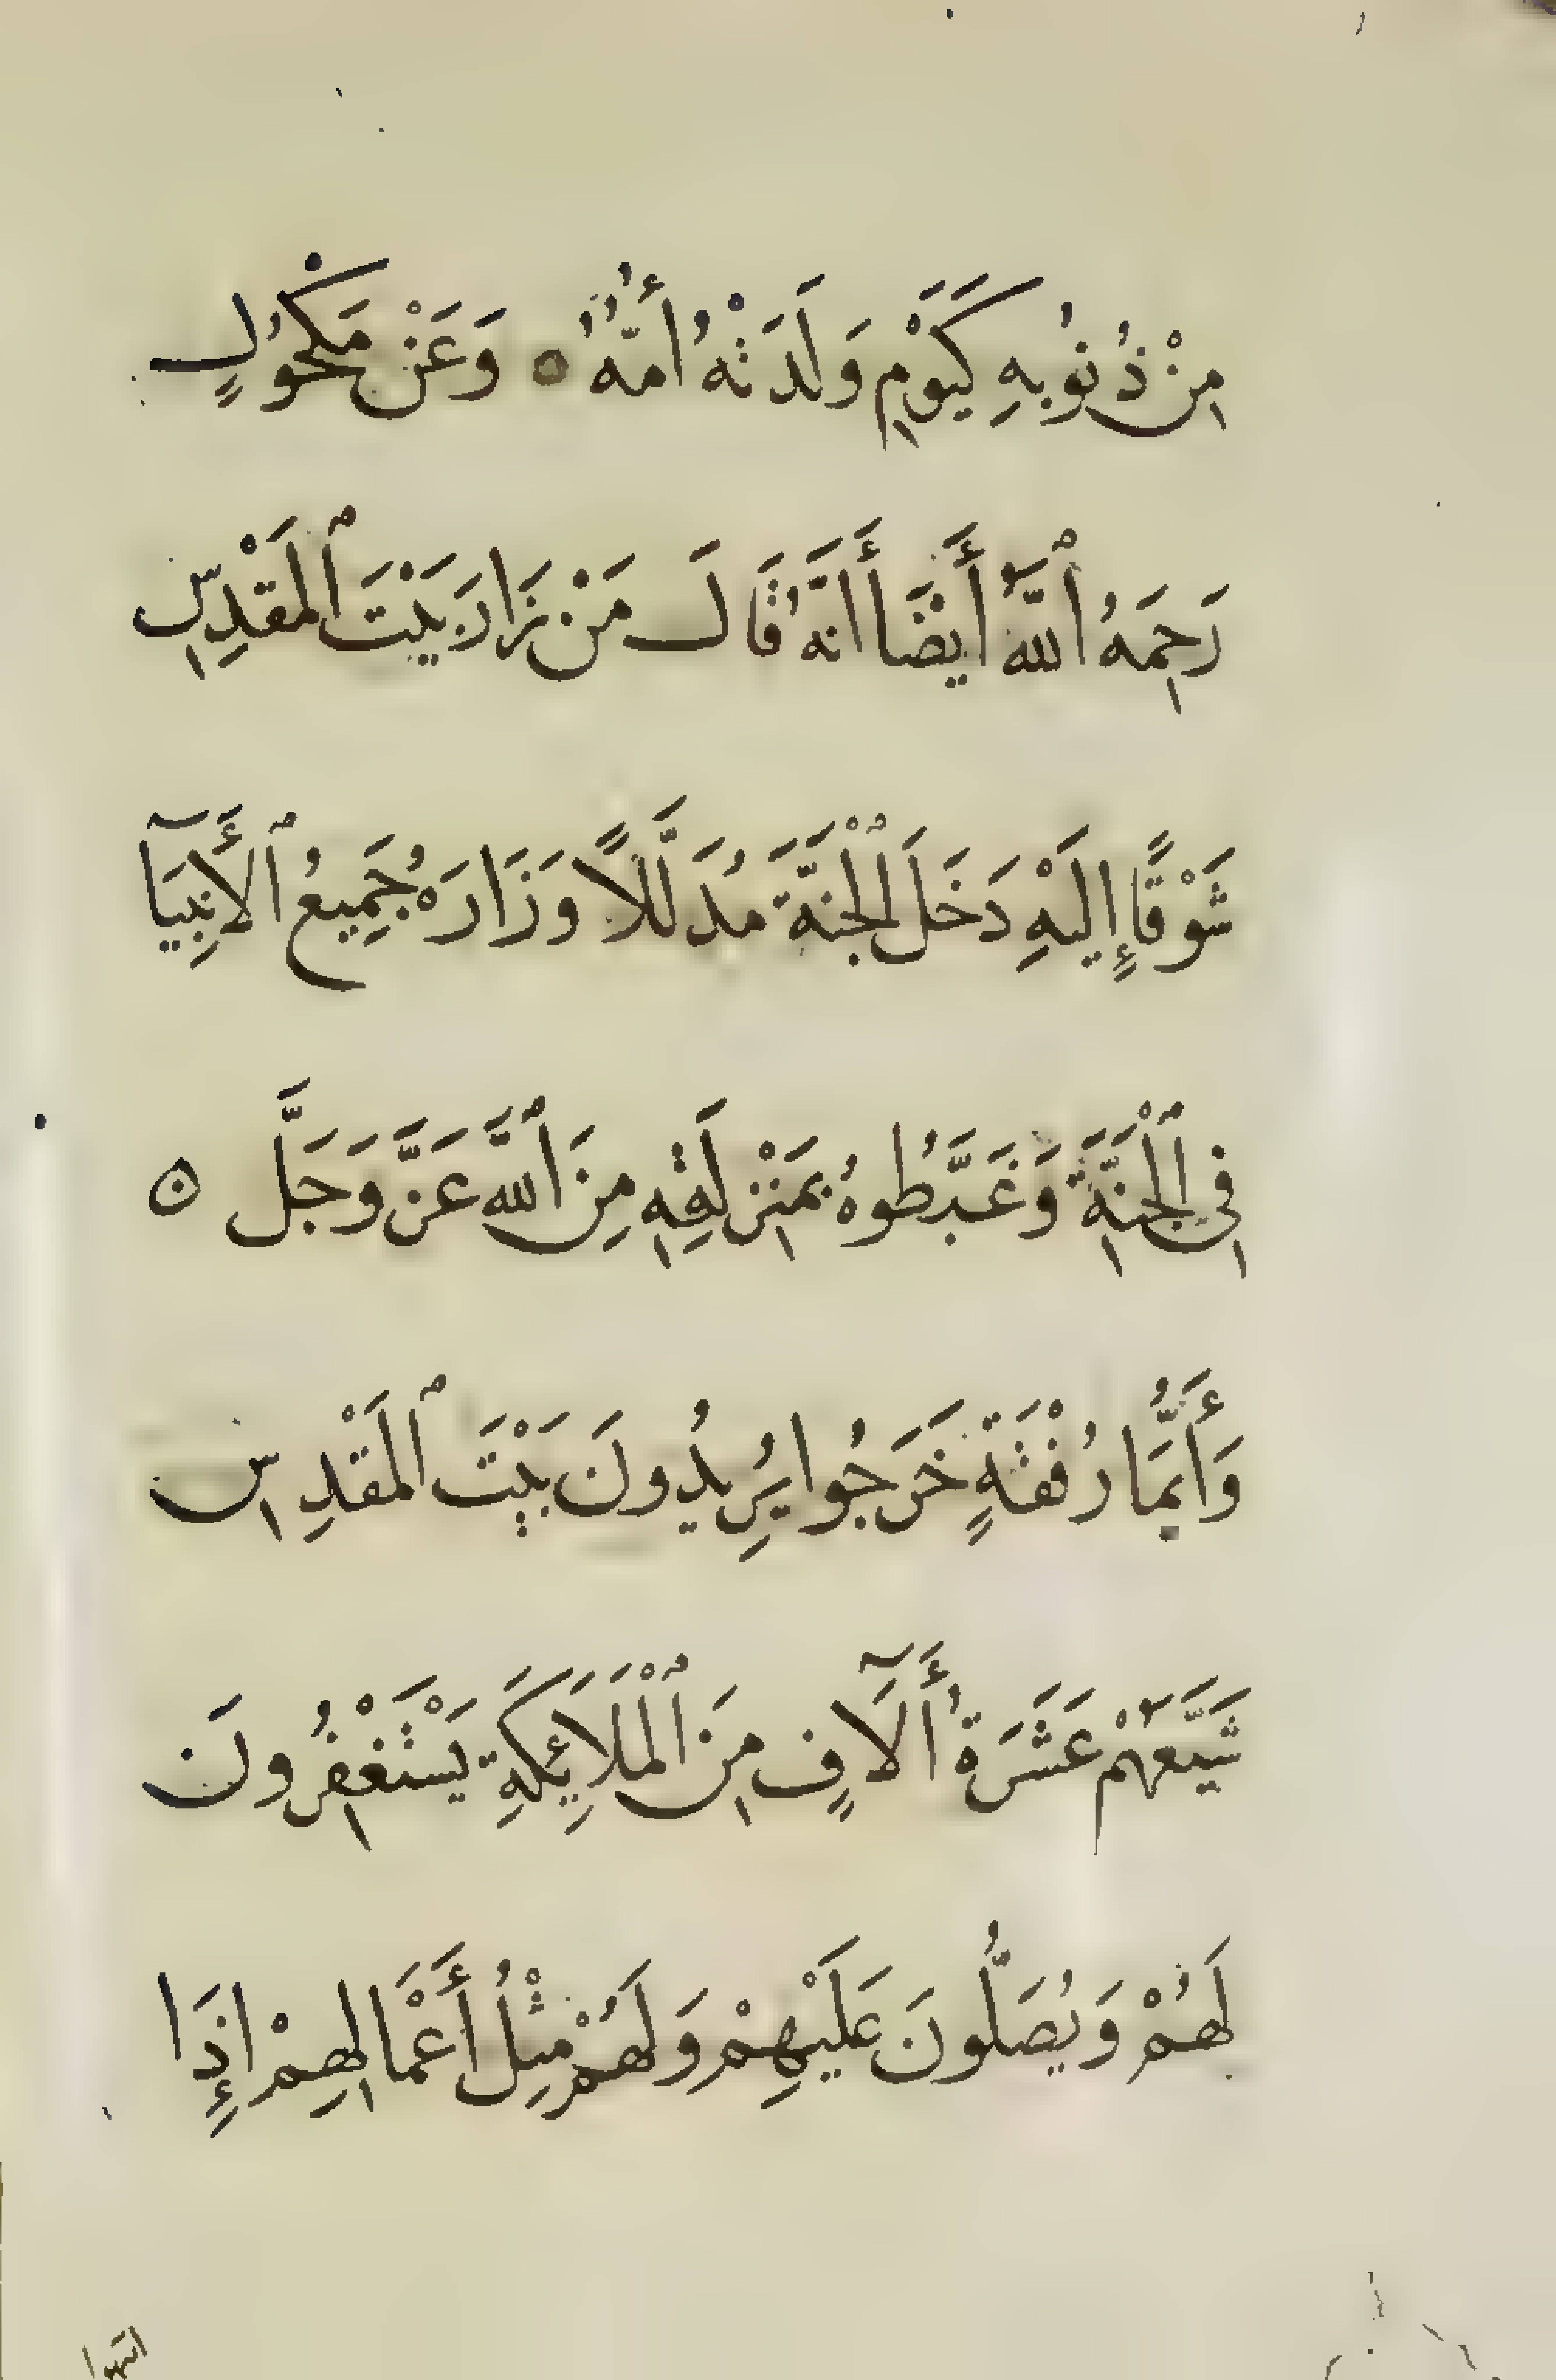 مِنْ ذُنُوبِهِ كَيَوْمِ وَلَدَتْهُ أُمُّهُ ه وَعَنْ مَكْحُولٍ
رَحِمَهُ ٱللَّهُ أَيْضَا أَنَّهُ قَالَ مَنْ زَارَ بَيْتَ ٱلْمَقْدِسِ
شَوْقًا إِلَيْهِ دَخَلَ ٱلْجَنَّةَ مُدَلَّلًا وَزَارَهُ جَمِيعُ ٱلْأَنْبِيَآ
فِي ٱلْجَنَّةِ وَغَبَّطُوهُ بِمَنْزِلَتِهِ مِنَ ٱللَّهِ عَزَّ وَجَلَّ ه
وَأَيُّمَا رُفْقَةٍ خَرَجُوا يُرِيدُونَ بَيْتَ ٱلْمَقْدِسِ
شَيَّعَهُمْ عَشَرَةُ أَلَآفٍ مِنَ ٱلْمَلَائِكَةِ يَسْتَغْفِرُونَ
لَهُمْ وَيُصَلُّونَ عَلَيْهِمْ وَلَهُمْ مِثْلُ أَعْمَالِهِمْ إِذَا
انتهوا